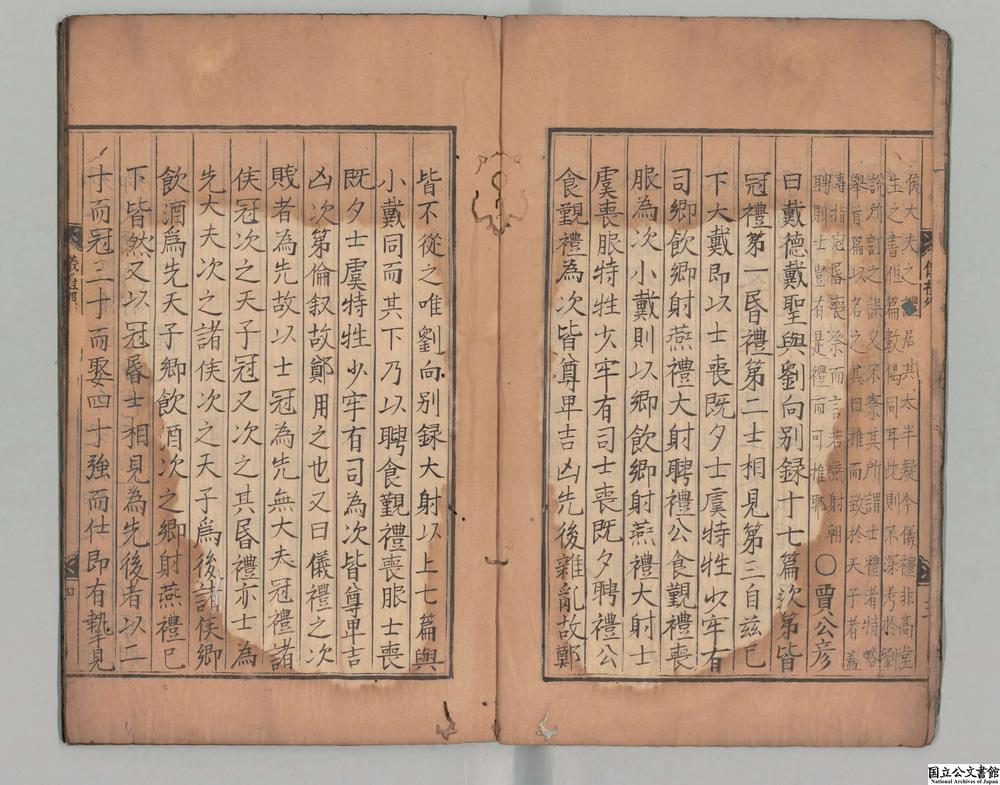 侯大夫之禮居其太半疑今儀禮非高堂
生之書但篇數偶同耳此則不深考於劉
說所訂之誤又不察其所謂士禮者特略
舉首篇以名之其曰推而致於天子者蓋
專指冠昏喪祭而言若燕射朝
聘則士豈有是禮而可推耶○賈公彥
曰戴德戴聖與劉向别録十七篇次第皆
冠禮第一昏禮第二士相見第三自兹已
下大戴即以士喪既夕士虞特牲少牢有
司鄉飲鄉射燕禮大射聘禮公食覲禮喪
服為次小戴則以鄉飲鄉射燕禮大射士
虞喪服特牲少牢有司士喪既夕聘禮公
食覲禮為次皆尊卑吉凶先後雜亂故鄭
皆不從之唯劉向别録大射以上七篇與
小戴同而其下乃以聘食覲禮喪服士喪
既夕士虞特牲少牢有司為次皆尊卑吉
凶次第倫叙故鄭用之也又曰儀禮之次
賤者為先故以士冠為先無大夫冠禮諸
侯冠次之天子冠又次之其昏禮亦士為
先大夫次之諸侯次之天子爲後諸侯鄉
飲酒爲先天子鄉飲酒次之鄉射燕禮已
下皆然又以冠昏士相見為先後者以二
十而冠三十而娶四十強而仕即有摯見
四
国立公文書館
National Archives of Japan